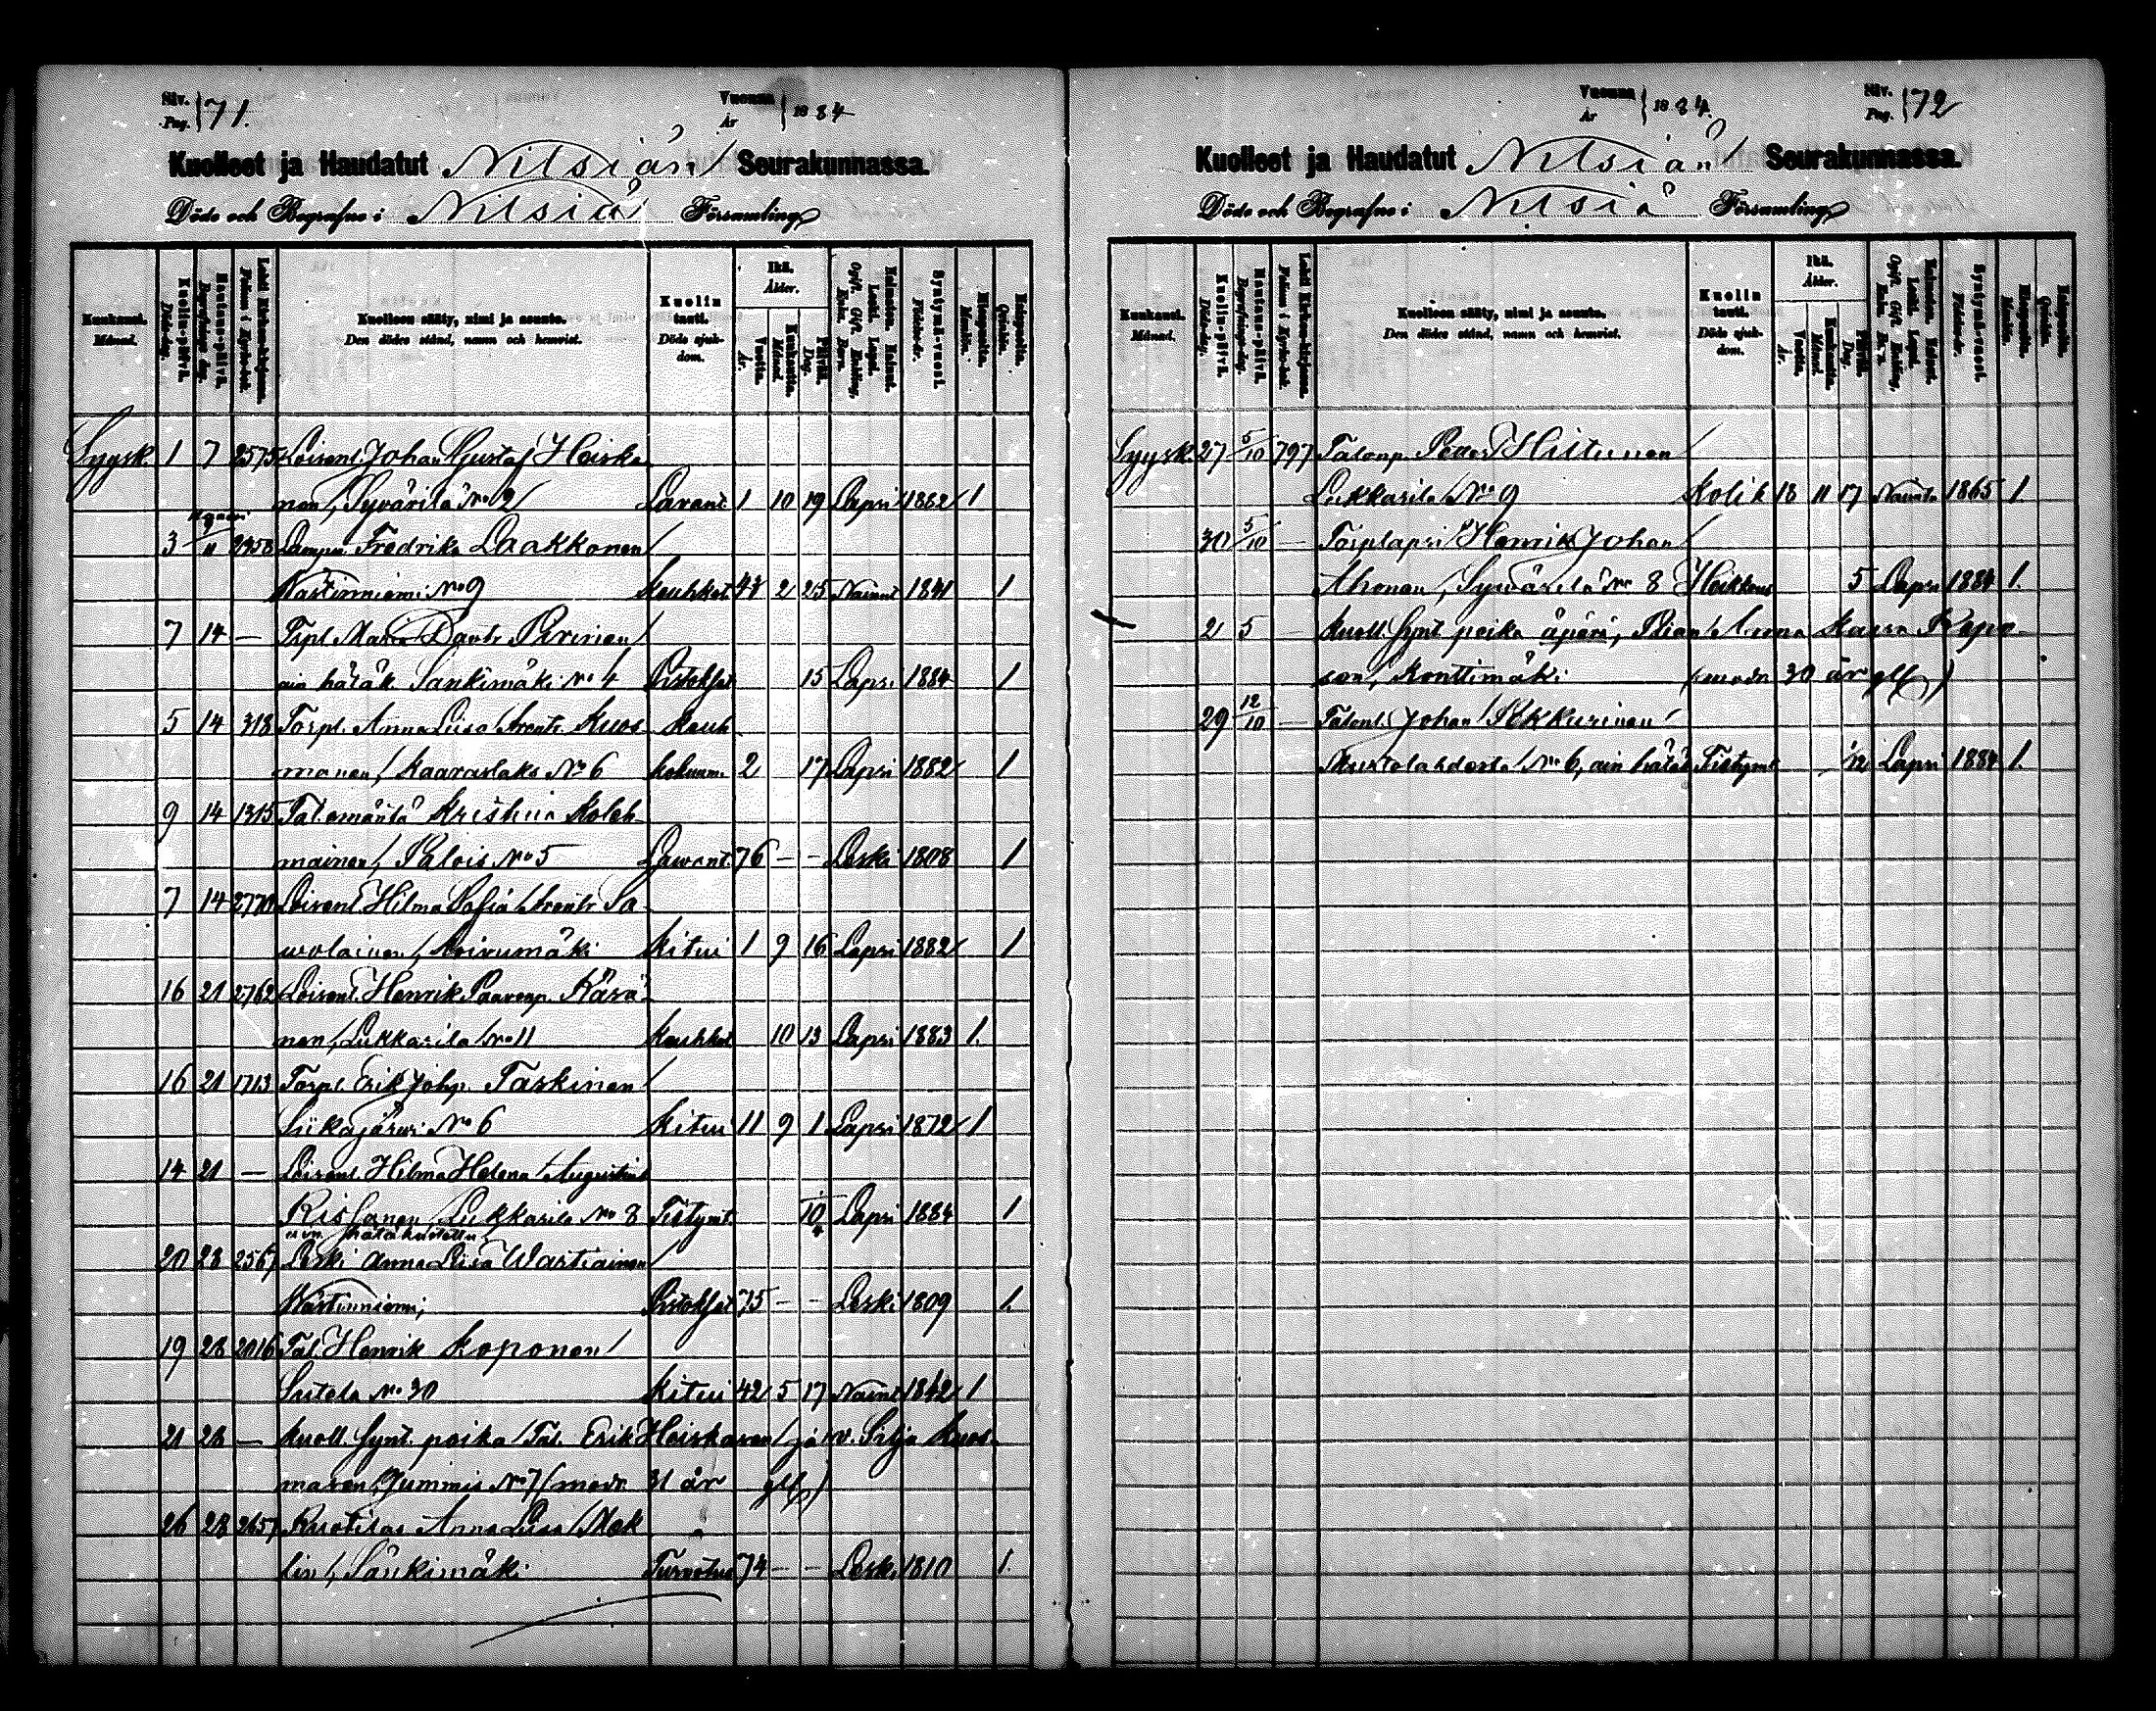 Siv. Pag. 71. Vuonna År 1884
Kuolleet ja Haudatut Nilsiän Seurakunnassa.
Döde och Begrafne i Nilsiä Församling
Kuukausi. Månad. Kuolin-päivä. Döds-dag. Hautaus-päivä. Begrafnings-dag. Lehti Kirkon-kirjassa. Folium i Kyrko-bok. Kuolleen sääty, nimi ja asunto. Den dödes stånd, namn och hemvist. Kuolin tauti. Döds sjuk-dom. Ikä. Ålder. Vuotta. År. Kuukautta. Månad. Päivää. Dag. Naimaton. Nainut. Leski. Lapsi. Ogift. Gift. Enkling, Enka. Barn. Syntymä-vuosi. Födelse-år. Miespuolta. Mankön. Vaimopuolta. Qvinkön.
Syysk. 1 7 2575 Loisenl. Johan Gustaf Heiska
nen, Syvärilä No 2 Lavant. 1 10 19 Lapsi 1882 1
3 9/11 2958 Fredrika Laakkonen
Västinniemi No 9 Keuhkot. 43 2 25 Nainut 1841 1
7 14 — Tspl. Maria Dantr Pirinen
ain hätäk. Sänkimäki No 4 Pistokset 15 Lapsi 1884 1
5 14 318 Torpl. Anna Liisa Kuos-
manen, Kaaraslaks No 6 2 17 Lapsi 1882 1
9 14 1315 Tal.emäntä Kristiina Koleh
mainen, Palois No 5 Lavant. 76 — — Leski 1808 1
7 14 2770 Loisenl. Hilma Sofia Sa-
wolainen, Koivumäki Kitui 1 9 16 Lapsi 1882 1
16 21 2762 Loisenl. Henrik Paavonp. Räsä-
nen, Lukkarila No 11 Keuhkot 10 13 Lapsi 1883 1.
16 21 1713 Torpl. Erik Johp. Taskinen
Siikajärvi No 6 Kitui 11 9 1 Lapsi 1872 1
14 21 — Loisenl. Hilma Helena Augustint
Rissanen Lukkarila No 8 Tistymt. Lapsi 1884 1
ain hätäkastettu
20 28 2567 Leski Anna Liisa Wartiainen
Västinniemi, Pistokset 75 — — Leski 1809 1.
19 28 2016 Tal. Henrik Koponen
Sutela No 30 Kitui 42 5 17 Nainut 1842 1
21 28 — Kuoll. synt. poika Tal. Erik Heiskasen ja v. Silja Kuos-
masen, Jummis No 7 (modr. 31 år glft)
26 28 2657 Ruotilas Anna Liisa Mek
lin, Sänkimäki Turvotus 74 — — Leski 1810 1.
Vuonna År 1884. Siv. Pag. 72
Kuolleet ja Haudatut Nilsiän Seurakunnassa.
Döde och Begrafne i Nilsiä Församling
Kuukausi. Månad. Kuolin-päivä. Döds-dag. Hautaus-päivä. Begrafnings-dag. Lehti Kirkon-kirjassa. Folium i Kyrko-bok. Kuolleen sääty, nimi ja asunto. Den dödes stånd, namn och hemvist. Kuolin tauti. Döds sjuk-dom. Ikä. Ålder. Vuotta. År. Kuukautta. Månad. Päivää. Dag. Naimaton. Nainut. Leski. Lapsi. Ogift. Gift. Enkling, Enka. Barn. Syntymä-vuosi. Födelse-år. Miespuolta. Mankön. Vaimopuolta. Qvinkön.
Syysk. 27 5/10 797 Talonp. Petter Hiltunen
Lukkarila No 9 Kolik 18 11 17 1865 1.
30 5/10 — Torplapsi Henrik Johan
Ahonen, Syvärilä No 8 Heikkous 5 Lapsi 1884 1.
2 5 — Kuoll. synt. poika äpärä, Piian Anna Kaisa Repo-
sen, Konttimäki (modr. 30 år glft)
29 12/10 — Talonl. Johan Pekkarinen
Mustalahdesta No 6, ain hätäk Tistymt 1/2 Lapsi 1884 1.